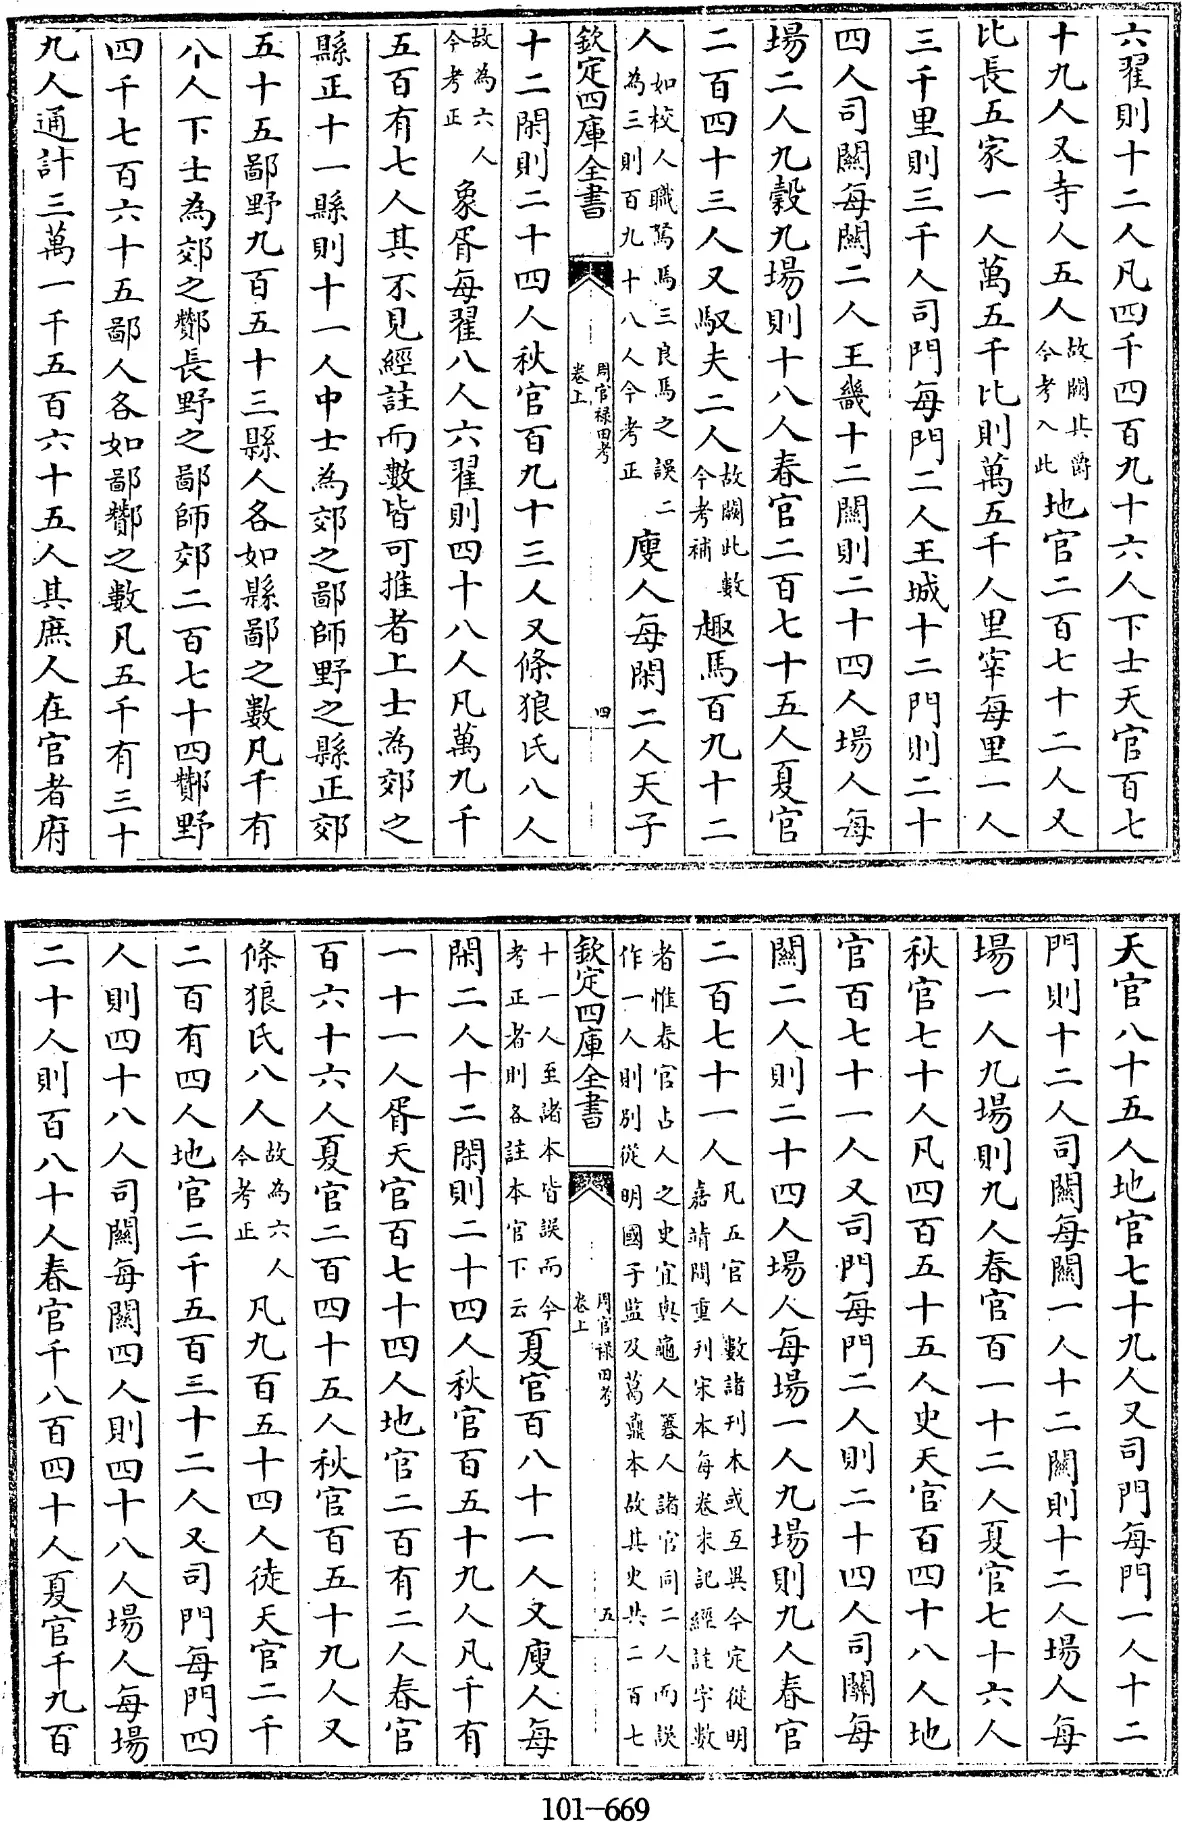 六翟則十二人凡四千四百九十六人下士天官百七
十九人又寺人五人故闕其爵今考入此地官二百七十二人又
比長五家一人萬五千比則萬五千人里宰每里一人
三千里則三千人司門每門二人王城十二門則二十
四人司關每關二人王畿十二關則二十四人場人每
場二人九穀九場則十八人春官二百七十五人夏官
二百四十三人又馭夫二人故闕此數今考補趣馬百九十二
人如校人職駑馬三良馬之誤二為三則百九十八人今考正廋人每閑二人天子
欽定四庫全書 周官禄田考卷上 四
十二閑則二十四人秋官百九十三人又條狼氏八人
故為六人今考正象胥每翟八人六翟則四十八人凡萬九千
五百有七人其不見經註而數皆可推者上士為郊之
縣正十一縣則十一人中士為郊之鄙師野之縣正郊
五十五鄙野九百五十三縣人各如縣鄙之數凡千有
八人下士為郊之酇長野之鄙師郊二百七十四酇野
四千七百六十五鄙人各如鄙酇之數凡五千有三十
九人通計三萬一千五百六十五人其庶人在官者府
天官八十五人地官七十九人又司門每門一人十二
門則十二人司關每關一人十二關則十二人場人每
場一人九場則九人春官百一十二人夏官七十六人
秋官七十人凡四百五十五人史天官百四十八人地
官百七十一人又司門每門二人則二十四人司關每
關二人則二十四人場人每場一人九場則九人春官
二百七十一人凡五官人數諸刊本或互異今定從明嘉靖間重刊宋本每卷末記經註字數
者惟春官占人之史宜與龜人簭人諸官同二人而誤作一人則別從明國子監及葛鼐本故其史共二百七
欽定四庫全書 周官禄田考卷上 五
十一人至諸本皆誤而今考正者則各註本官下云夏官百八十一人又廋人每
閑二人十二閑則二十四人秋官百五十九人凡千有
一十一人胥天官百七十四人地官二百有二人春官
百六十六人夏官二百四十五人秋官百五十九人又
條狼氏八人故為六人今考正凡九百五十四人徒天官二千
二百有四人地官二千五百三十二人又司門每門四
人則四十八人司關每關四人則四十八人場人每場
二十人則百八十人春官千八百四十人夏官千九百
101-669